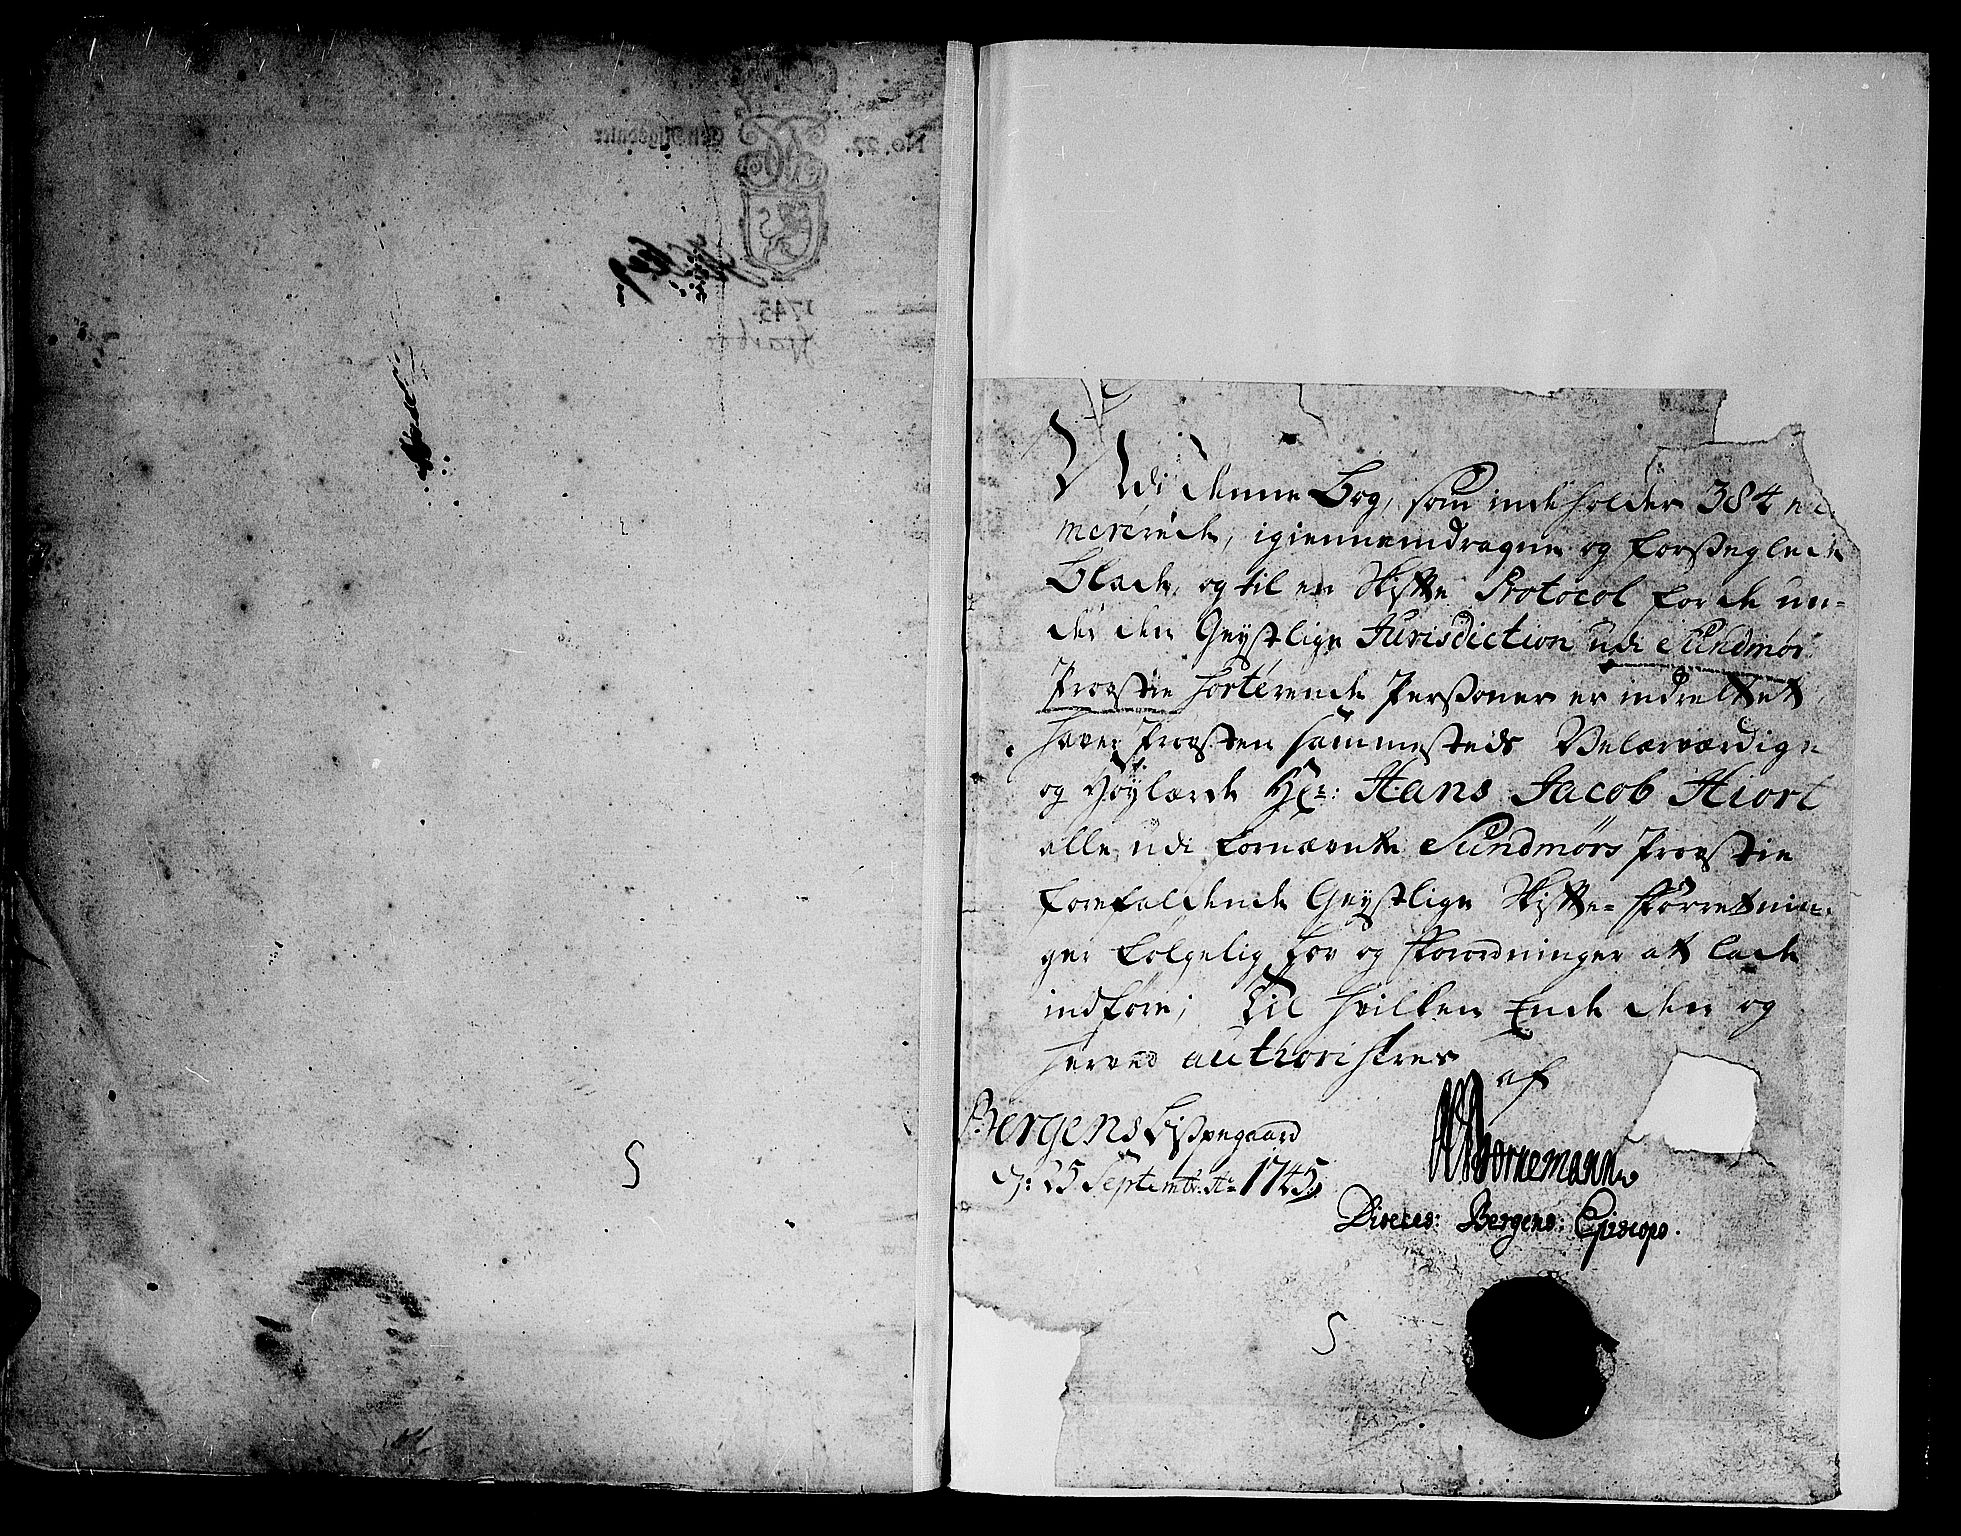 No. 22.
1745.
Udi denne Bog, som indeholder 384 nu-
mererede, igiennemdragne og forseglede
Blade, og til en Skifte Protocol for de un-
der den Geystlige Jurisdiction udi Sundmørs
Provstie sorterende Persohner er indrettet,
haver Provsten sammesteds Velærværdige
og Høylærde Hr: Hans Jacob Hiort
alle udi fornævnte Sundmørs Provstie
forefaldende Geystlige Skifte-Forretnin-
ger følgelig Lov og Forordninger at lade
indføre; Til hvilken Ende den og
herved authoriseres
af
Bergens Bispegaard
d: 25 Septembr: Ao 1745.
Bornemann
Dioeces: Bergens: Episcopo.